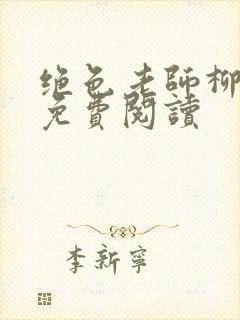 绝色老师柳
免費閱讀
李新寧